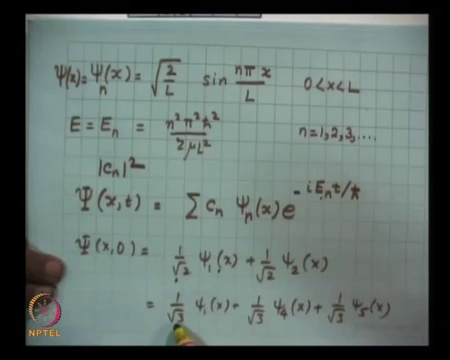 ψ(x) = ψₙ(x) = √(2/L) sin nπx/L 0<x<L
E = Eₙ = n²π²ħ²/2μL² n=1,2,3,....
|cₙ|²
Ψ(x,t) = Σ cₙ ψₙ(x) e^(-iEₙt/ħ)
Ψ(x,0) = 1/√2 ψ₁(x) + 1/√2 ψ₂(x)
= 1/√3 ψ₁(x) + 1/√3 ψ₄(x) + 1/√3 ψ₅(x)
NPTEL